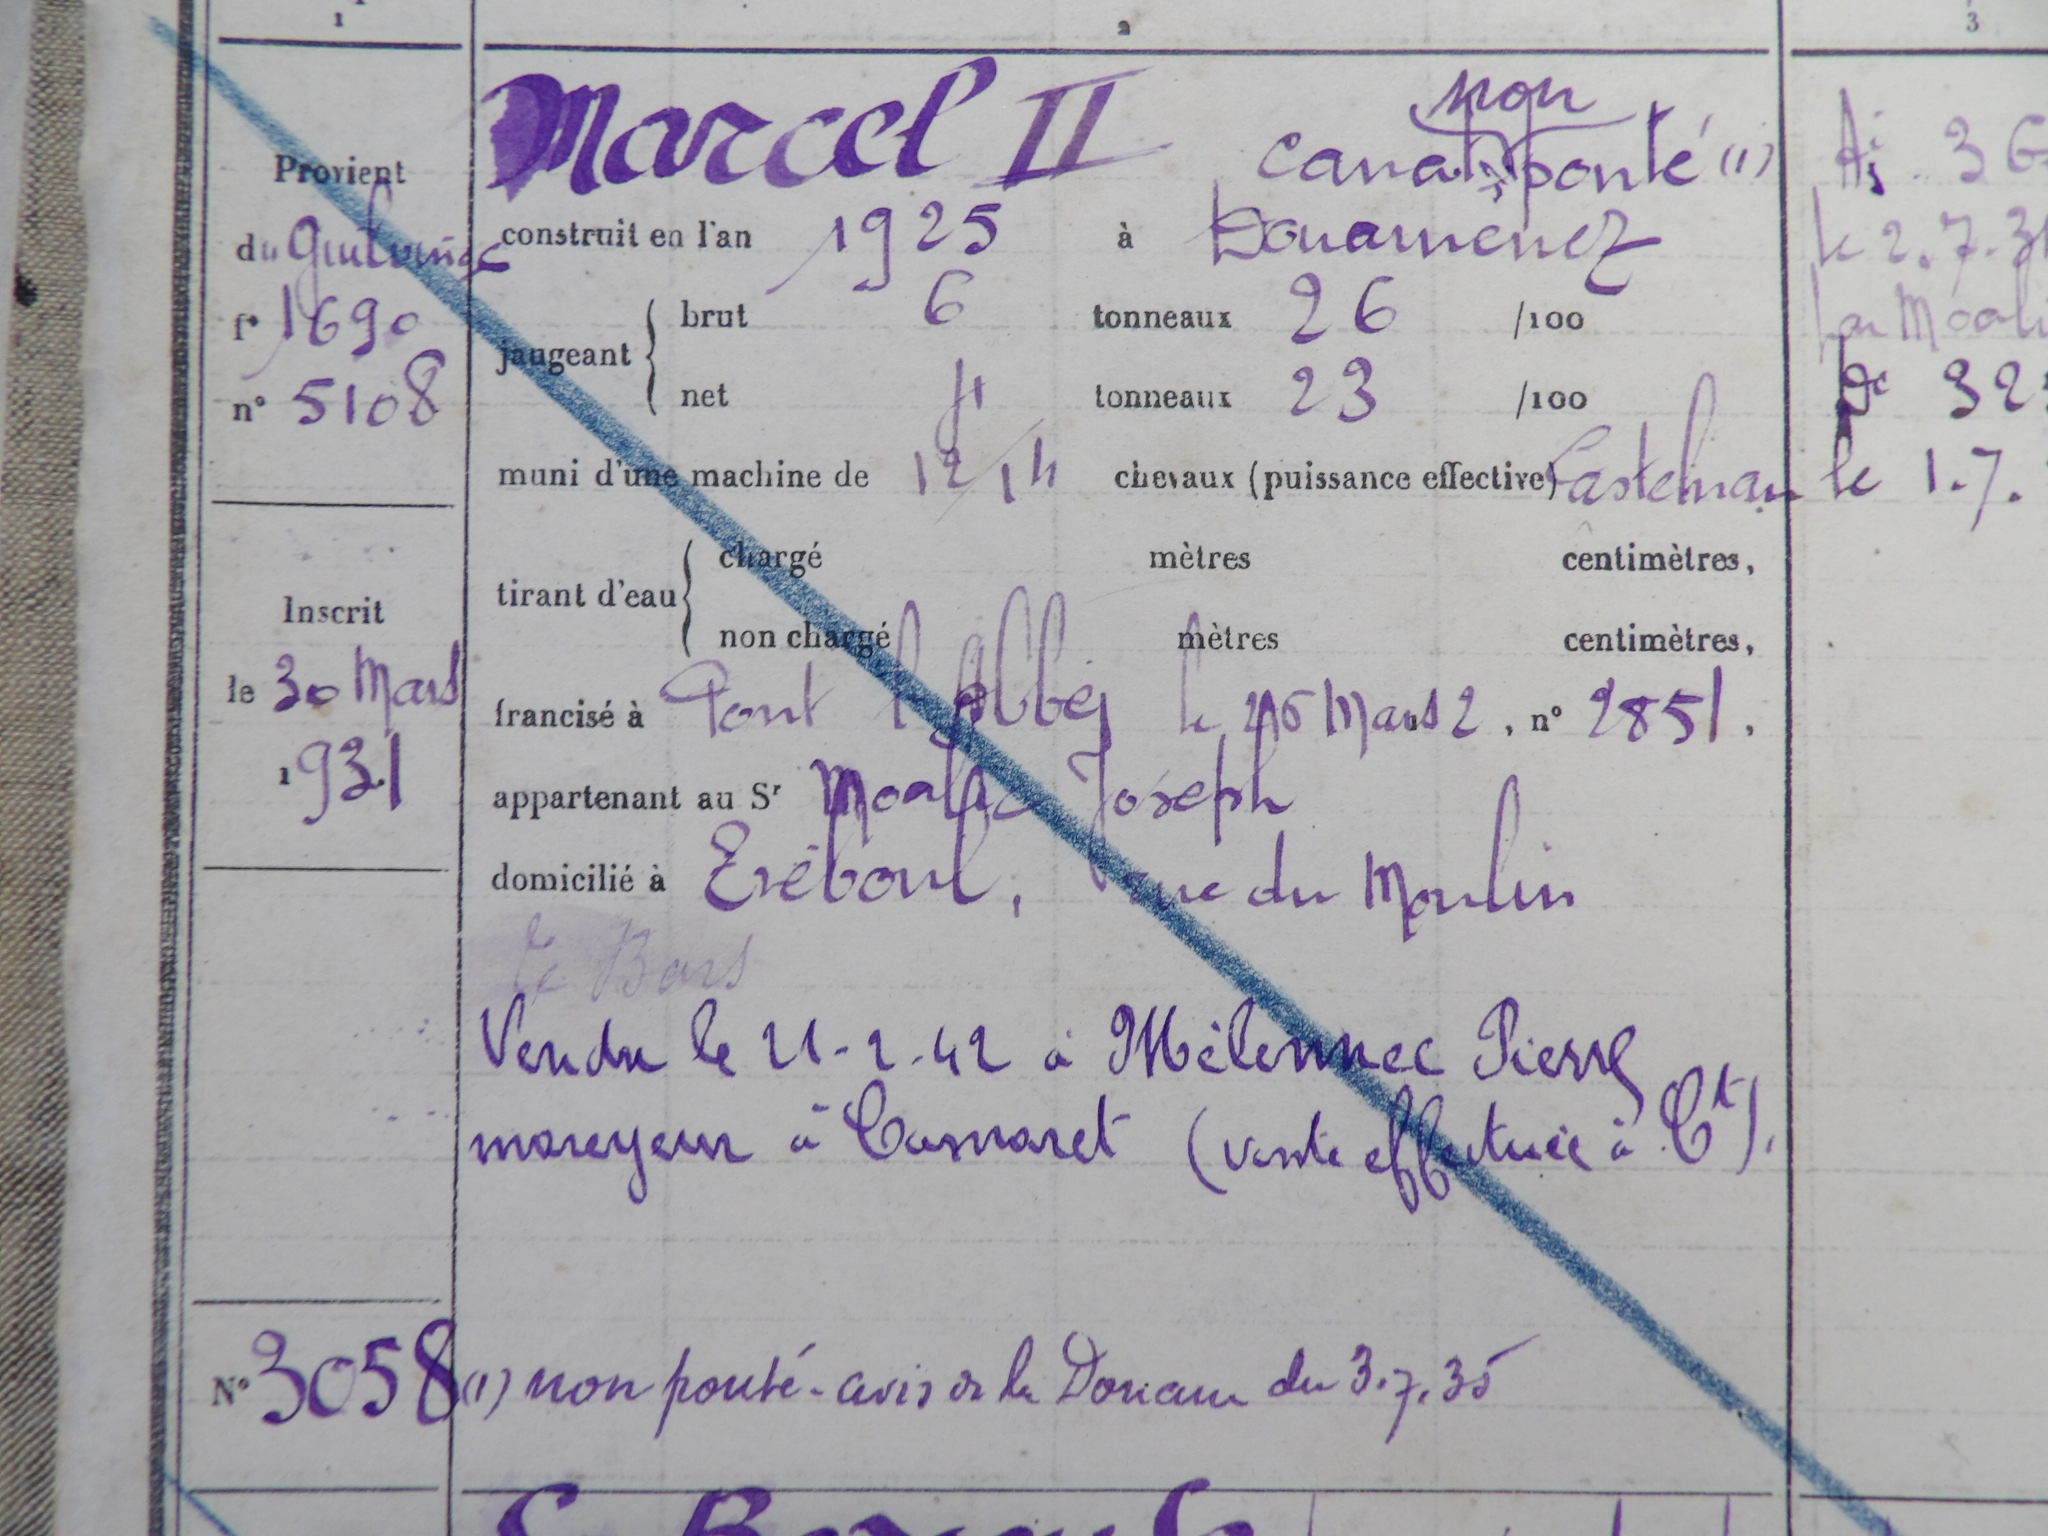 1
2
3
Provient
du Guilvinec
f° 1690
n° 5108
Inscrit
le 30 Mars
1931
N° 3058
Marcel II
non
canot ponté (1)
construit en l'an 1925 à Douarnenez
jaugeant brut 6 tonneaux 26 /100
net 4 tonneaux 23 /100
muni d'une machine de 12/14 chevaux (puissance effective) Castelnau
tirant d'eau chargé mètres centimètres,
non chargé mètres centimètres,
francisé à Pont l'Abbé, le Mars , n° 2851.
appartenant au Sr Moalic Joseph
domicilié à Tréboul, rue du Moulin
Le Bars
Vendu le 21-2-42 à Mélennec Pierre
mareyeur à Camaret (vente effectuée à Ct).
(1) non ponté - avis de la Douane du 3.7.35
le 2.7.3
par Moali
32
le 1.7.